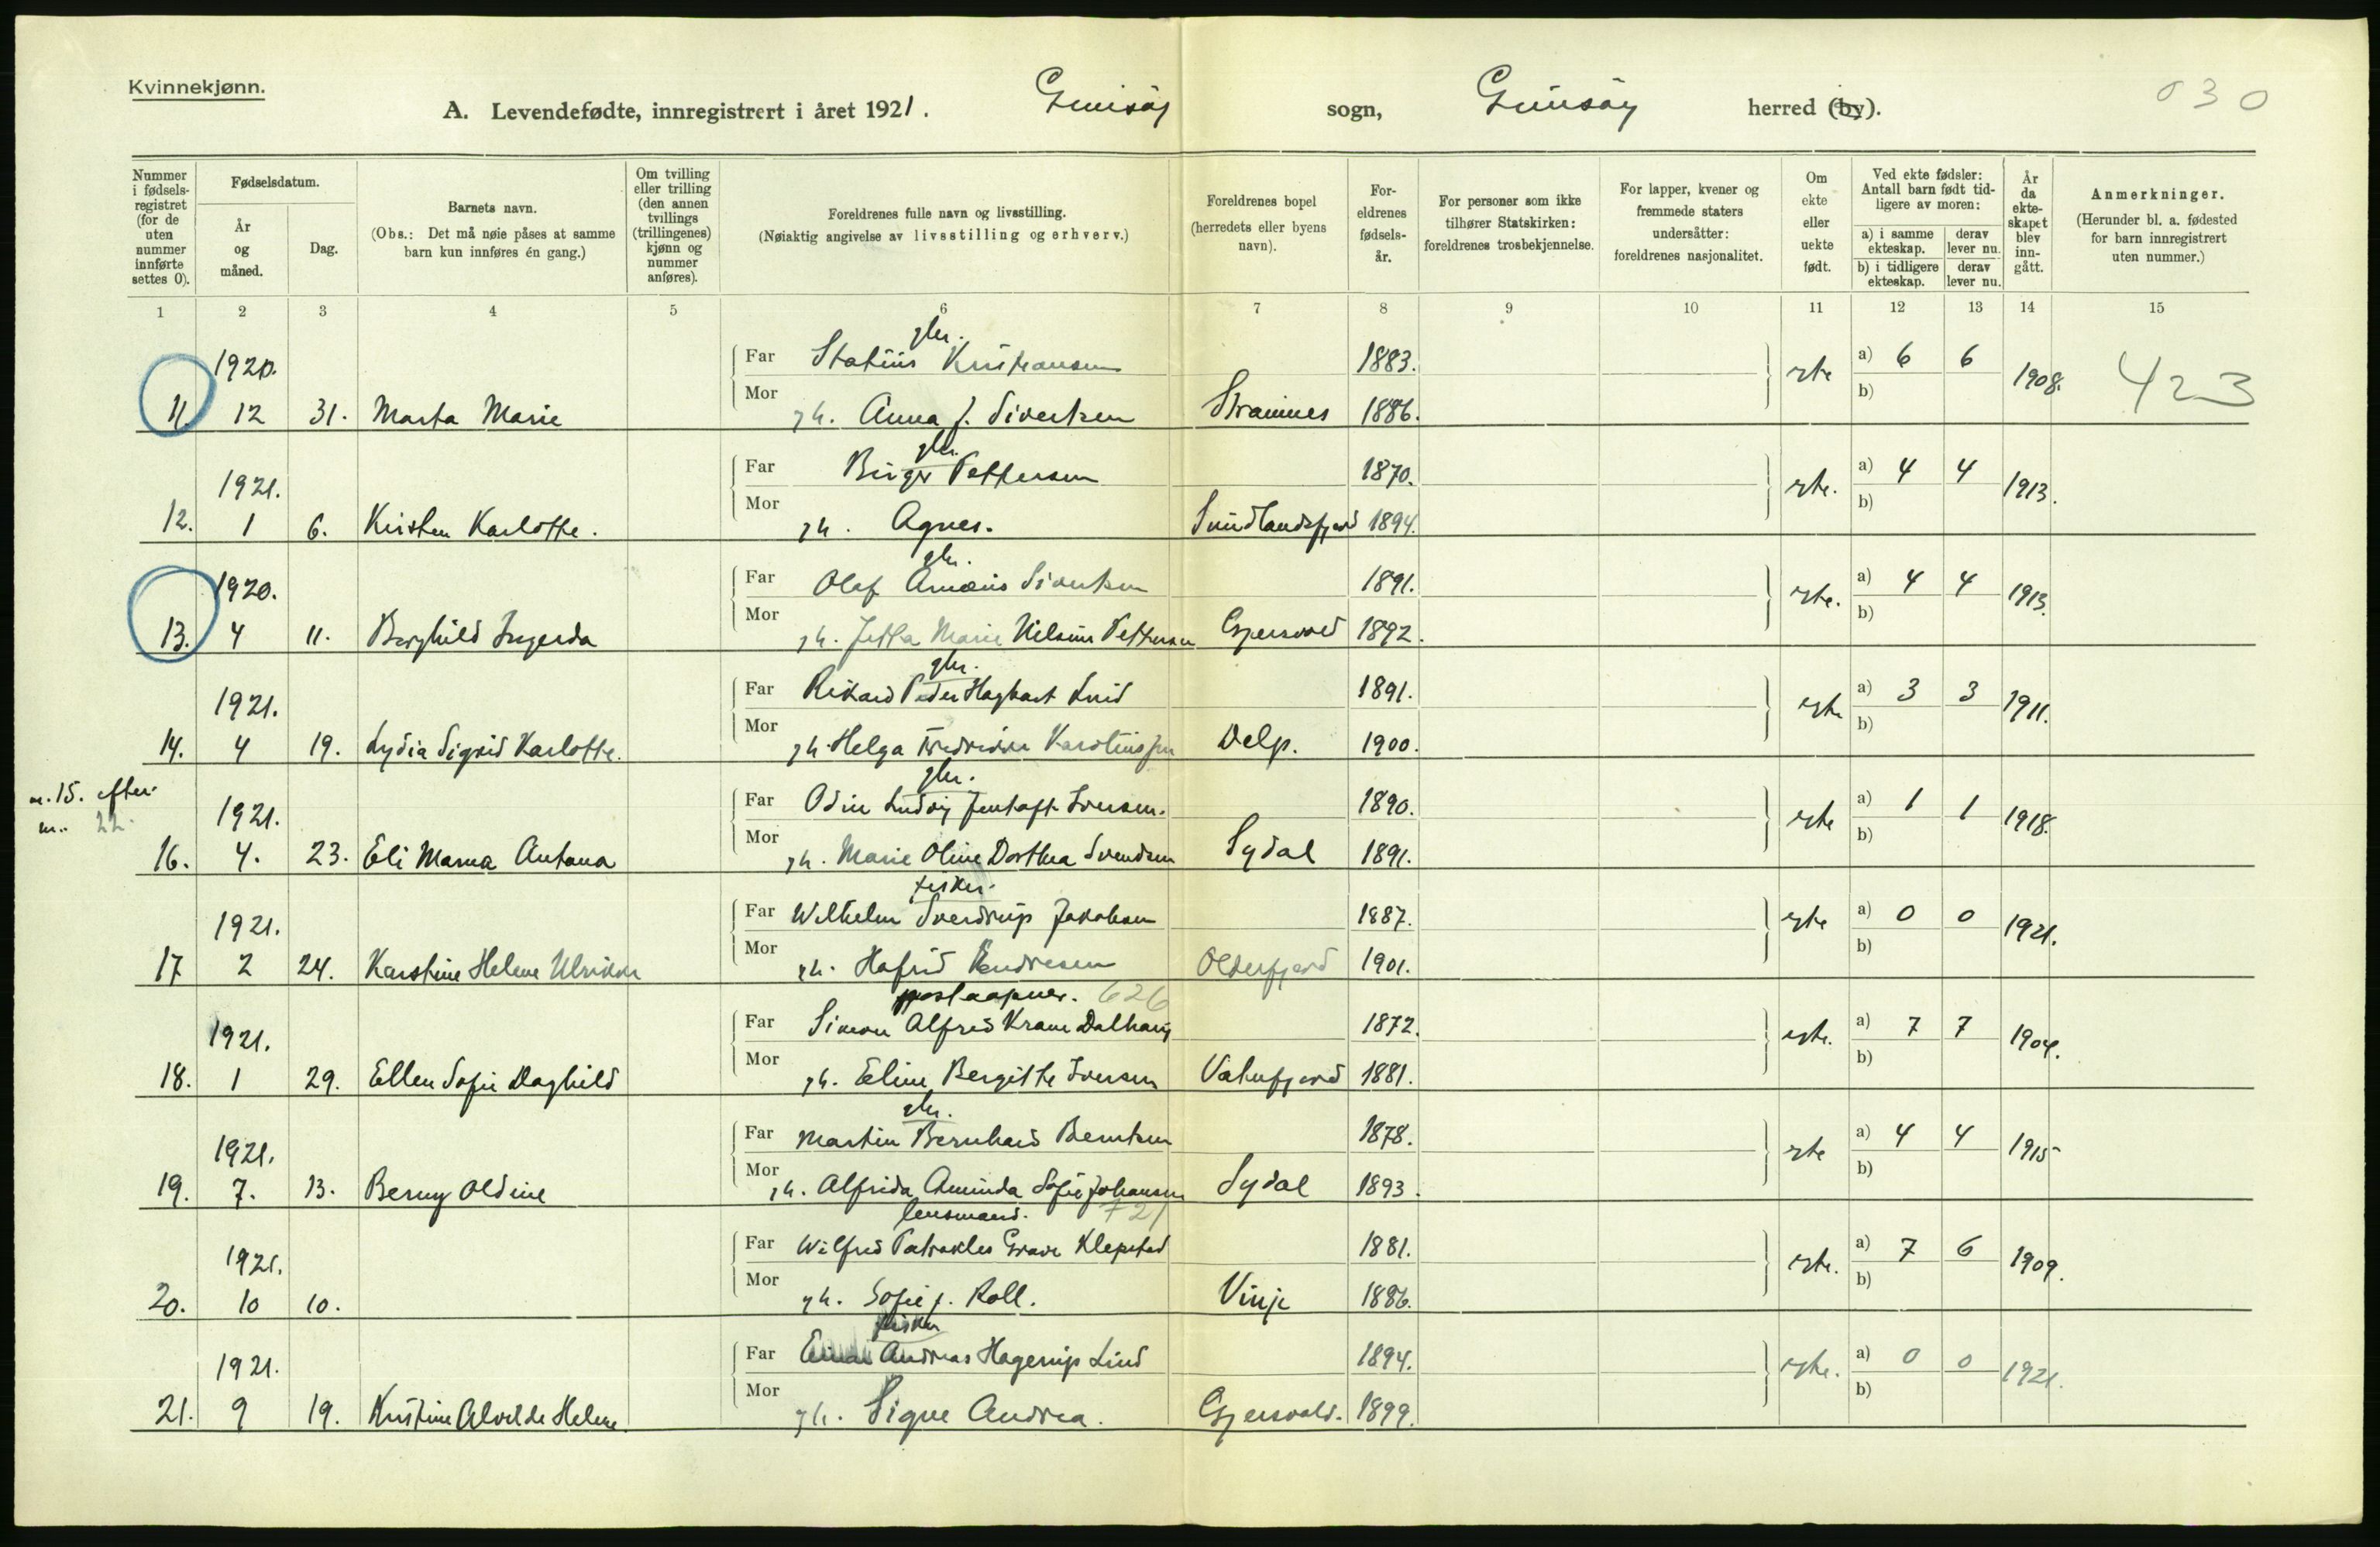 Kvinnekjønn.
A. Levendefødte, innregistrert i året 1921. Gimsøy sogn, Gimsøy herred (by). 030
Nummer i fødselsregistret (for de uten nummer innførte settes 0).
Fødselsdatum.
År og måned.
Dag.
Barnets navn.
(Obs.: Det må nøie påses at samme barn kun innføres én gang.)
Om tvilling eller trilling (den annen tvillings (trillingenes) kjønn og nummer anføres).
Foreldrenes fulle navn og livsstilling.
(Nøiaktig angivelse av livsstilling og erhverv.)
Foreldrenes bopel (herredets eller byens navn).
Foreldrenes fødselsår.
For personer som ikke tilhører Statskirken: foreldrenes trosbekjennelse.
For lapper, kvener og fremmede staters undersåtter: foreldrenes nasjonalitet.
Om ekte eller uekte født.
Ved ekte fødsler: Antall barn født tidligere av moren:
a) i samme ekteskap. derav lever nu.
b) i tidligere ekteskap. derav lever nu.
År da ekteskapet blev inngått.
Anmerkninger.
(Herunder bl. a. fødested for barn innregistrert uten nummer.)
1 2 3 4 5 6 7 8 9 10 11 12 13 14 15
gbr.
1920. Far Statius Kristiansen 1883. ekte a) 6 6 1908. 423
11. 12 31. Marta Marie Mor gh. Anna f. Sivertsen Strømnes 1886. b)
gbr.
1921. Far Birger Pettersen 1870. ekte. a) 4 4 1913.
12. 1 6. Kirsten Karlotte. Mor gh. Agnes. Sundlandsfjord 1894. b)
gbr.
1920. Far Olaf Amæus Sivertsen 1891. ekte. a) 4 4 1913.
13. 4 11. Borghild Ingerda Mor gh. Jetta Marie Nilsine Pettersen Gjersvold 1892. b)
gbr.
1921. Far Rikard Peder Hagbart Lind 1891. ekte a) 3 3 1911.
14. 4 19. Lydia Sigrid Karlotte. Mor gh. Helga Fredrikke Delp. 1900. b)
nr. 15. efter
nr. 22.
gbr.
1921. Far Odin Ludvig Jentoft Iversen. 1890. ekte a) 1 1 1918.
16. 4. 23. Eli Marna Antona Mor gh. Marie Oline Dorthea Svendsen Sydal 1891. b)
fisker.
1921. Far Wilhelm Sverdrup Jakobsen 1887. ekte a) 0 0 1921.
17 2 24. Karstine Helene Ulrikke Mor gh. Hafrid Endresen Olderfjord 1901. b)
postaapner. 626
1921. Far Simon Alfred Krane Dalhaug 1872. ekte. a) 7 7 1904.
18. 1 29. Ellen Sofie Daghild Mor gh. Eline Bergitte Iversen Vatnfjord 1881. b)
gbr.
1921. Far Martin Bernhard Berntsen 1878. ekte a) 4 4 1915
19. 7. 13. Berny Oldine Mor gh. Alfrida Aminda Sofie Johansen Sydal 1893. b)
lensmand. 721
1921. Far Wilfred Patrokles Grave Klepstad 1881. ekte. a) 7 6 1909.
20. 10 10. Mor gh. Sofie f. Roll. Vinje 1886. b)
fisker
1921. Far Einar Andreas Hagerup Lind 1894. ekte. a) 0 0 1921.
21. 9 19. Kristine Alvilde Helene. Mor gh. Signe Andrea. Gjersvold. 1899. b)